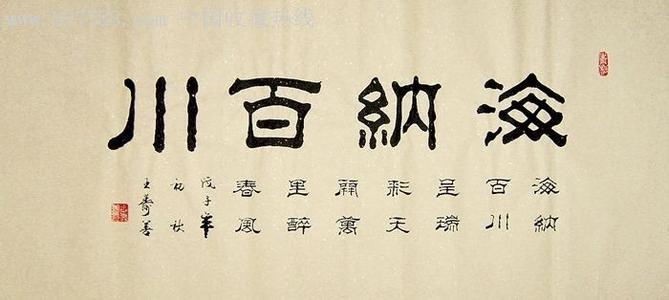 www.997788.com 中国收藏热线
海納百川
海納
百川
呈瑞
彩天
開萬
里醉
春風
戊子年
初秋
王壽善